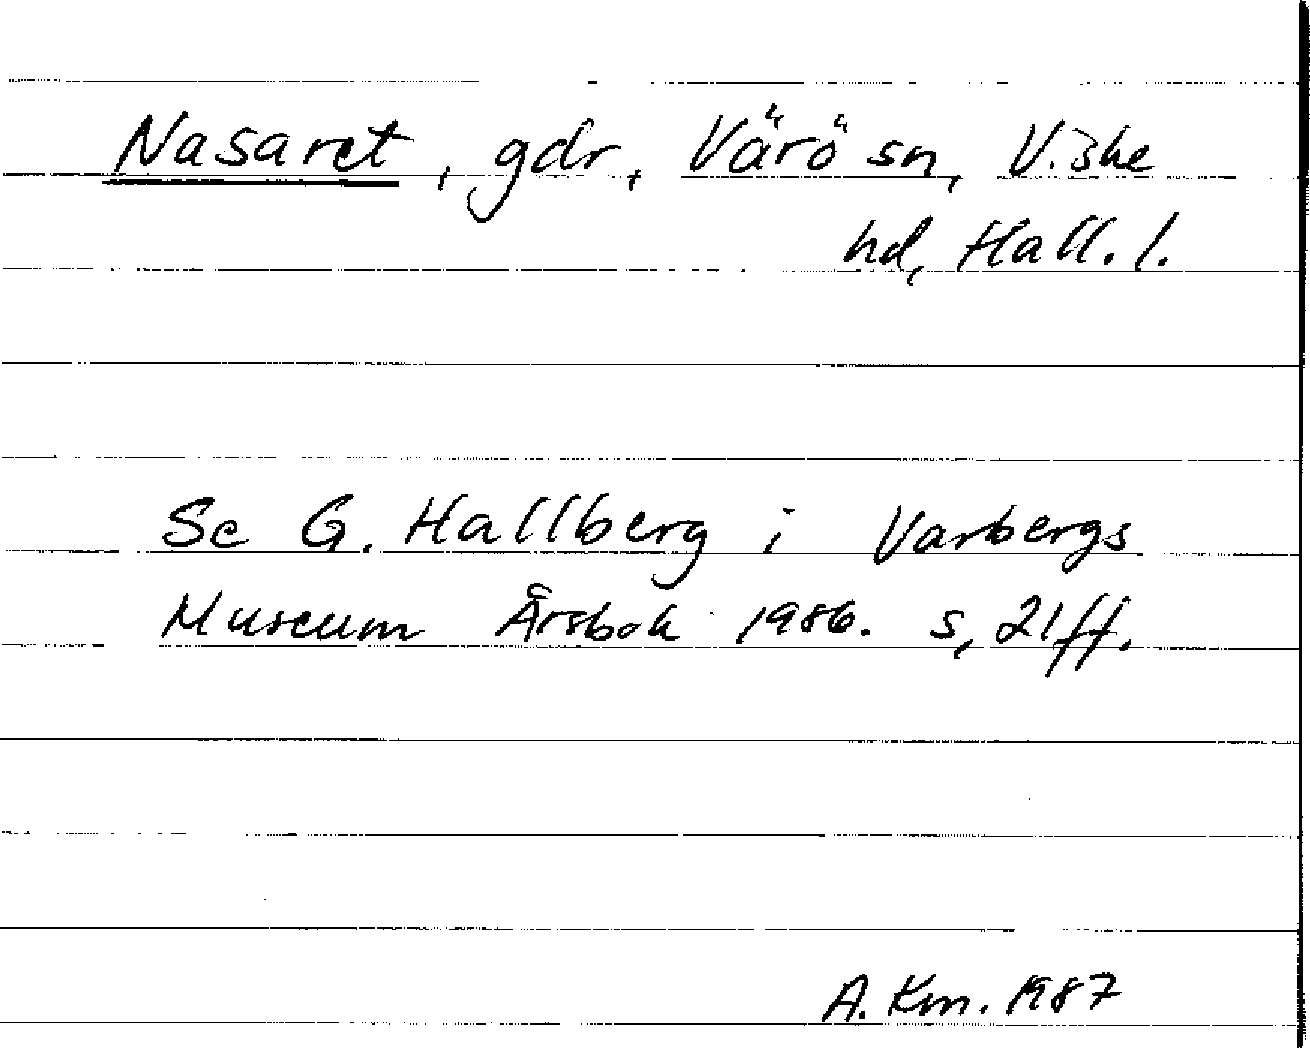 Nasaret, gdr, Värö sn, Viske
hd, Hall. l.
Se G. Hallberg i Varbergs
Museum Årsbok 1986. s, 21 ff.
A. Km. 1987